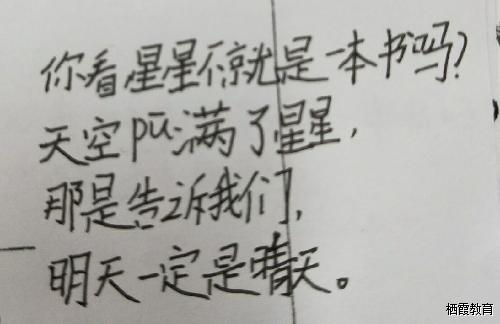 你看星星不就是一本书吗?
天空pū满了星星,
那是告诉我们,
明天一定是晴天。
栖霞教育